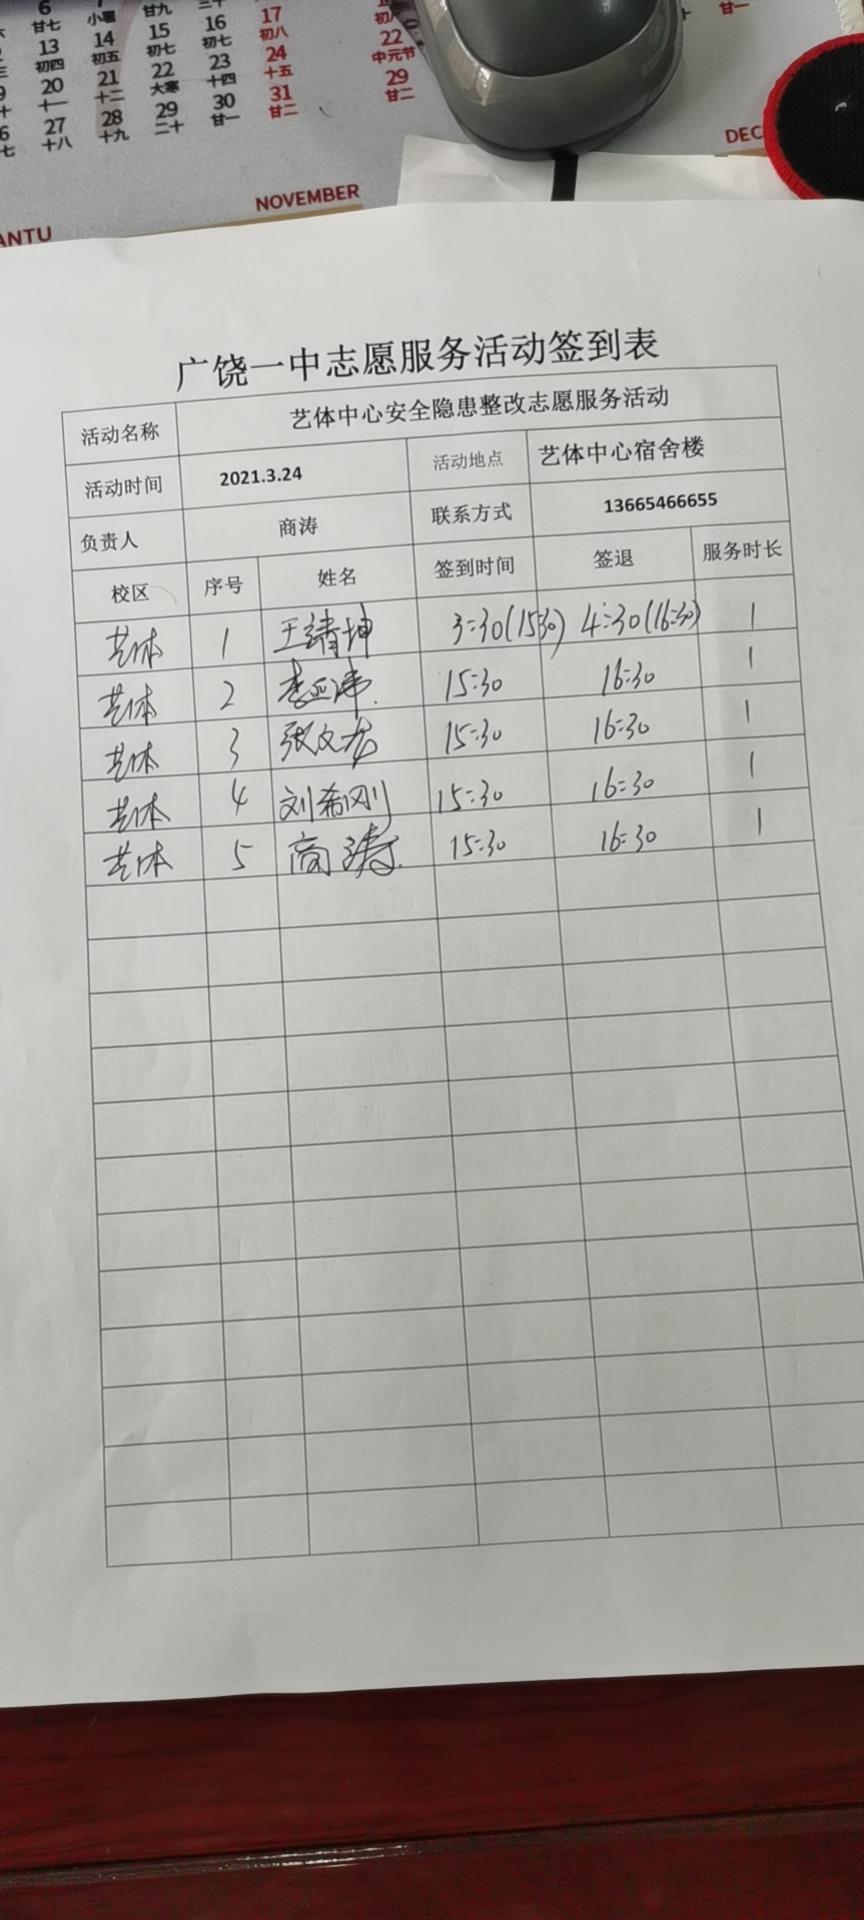 6 7
甘七 小暑 甘九 三十 17 初八 甘一
13 14 15 16 初八 22
初四 初五 初七 初七 24 中元节
20 21 22 23 十五 29
十一 十二 大寒 十四 31 甘二
27 28 29 30 甘二
十八 十九 二十 甘一
DEC
NOVEMBER
ANTU
广饶一中志愿服务活动签到表
活动名称 艺体中心安全隐患整改志愿服务活动
活动时间 2021.3.24 活动地点 艺体中心宿舍楼
负责人 商涛 联系方式 13665466655
校区 序号 姓名 签到时间 签退 服务时长
艺体 1 王靖坤 3:30(15:30) 4:30(16:30) 1
艺体 2 李亚伟 15:30 16:30 1
艺体 3 张文龙 15:30 16:30 1
艺体 4 刘希刚 15:30 16:30 1
艺体 5 商涛 15:30 16:30 1